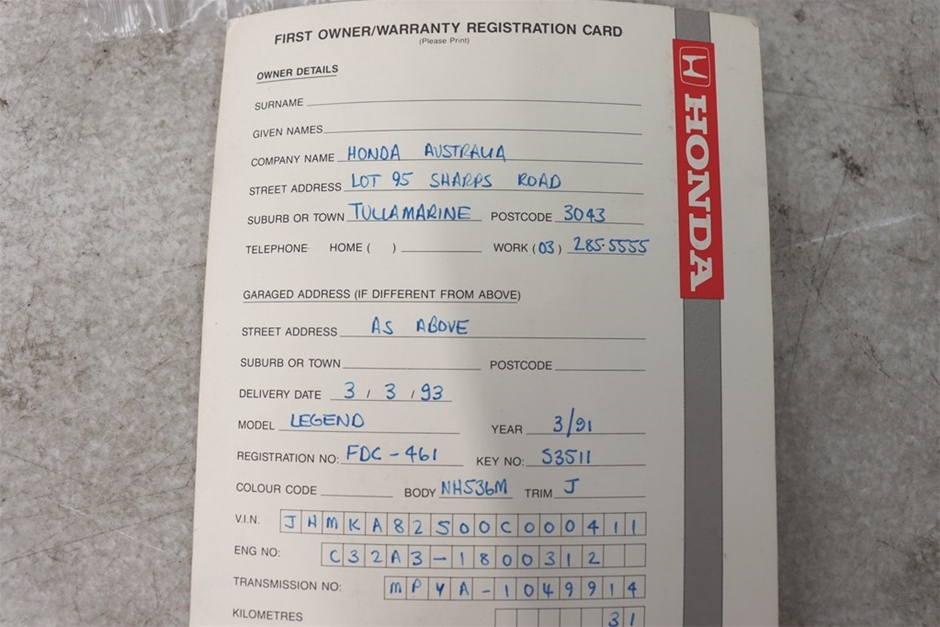 FIRST OWNER/WARRANTY REGISTRATION CARD
(Please Print)
OWNER DETAILS
SURNAME
GIVEN NAMES
COMPANY NAME HONDA AUSTRALIA
STREET ADDRESS LOT 95 SHARPS ROAD
SUBURB OR TOWN TULLAMARINE POSTCODE 3043
TELEPHONE HOME ( ) WORK (03) 285·5555
GARAGED ADDRESS (IF DIFFERENT FROM ABOVE)
STREET ADDRESS AS ABOVE
SUBURB OR TOWN POSTCODE
DELIVERY DATE 3 / 3 / 93
MODEL LEGEND YEAR 3/91
REGISTRATION NO: FDC-461 KEY NO: S3511
COLOUR CODE BODY NH536M TRIM J
V.I.N. JHMKA82500C000411
ENG NO: C32A3-1800312
TRANSMISSION NO: MPYA-1049914
KILOMETRES 31
HONDA